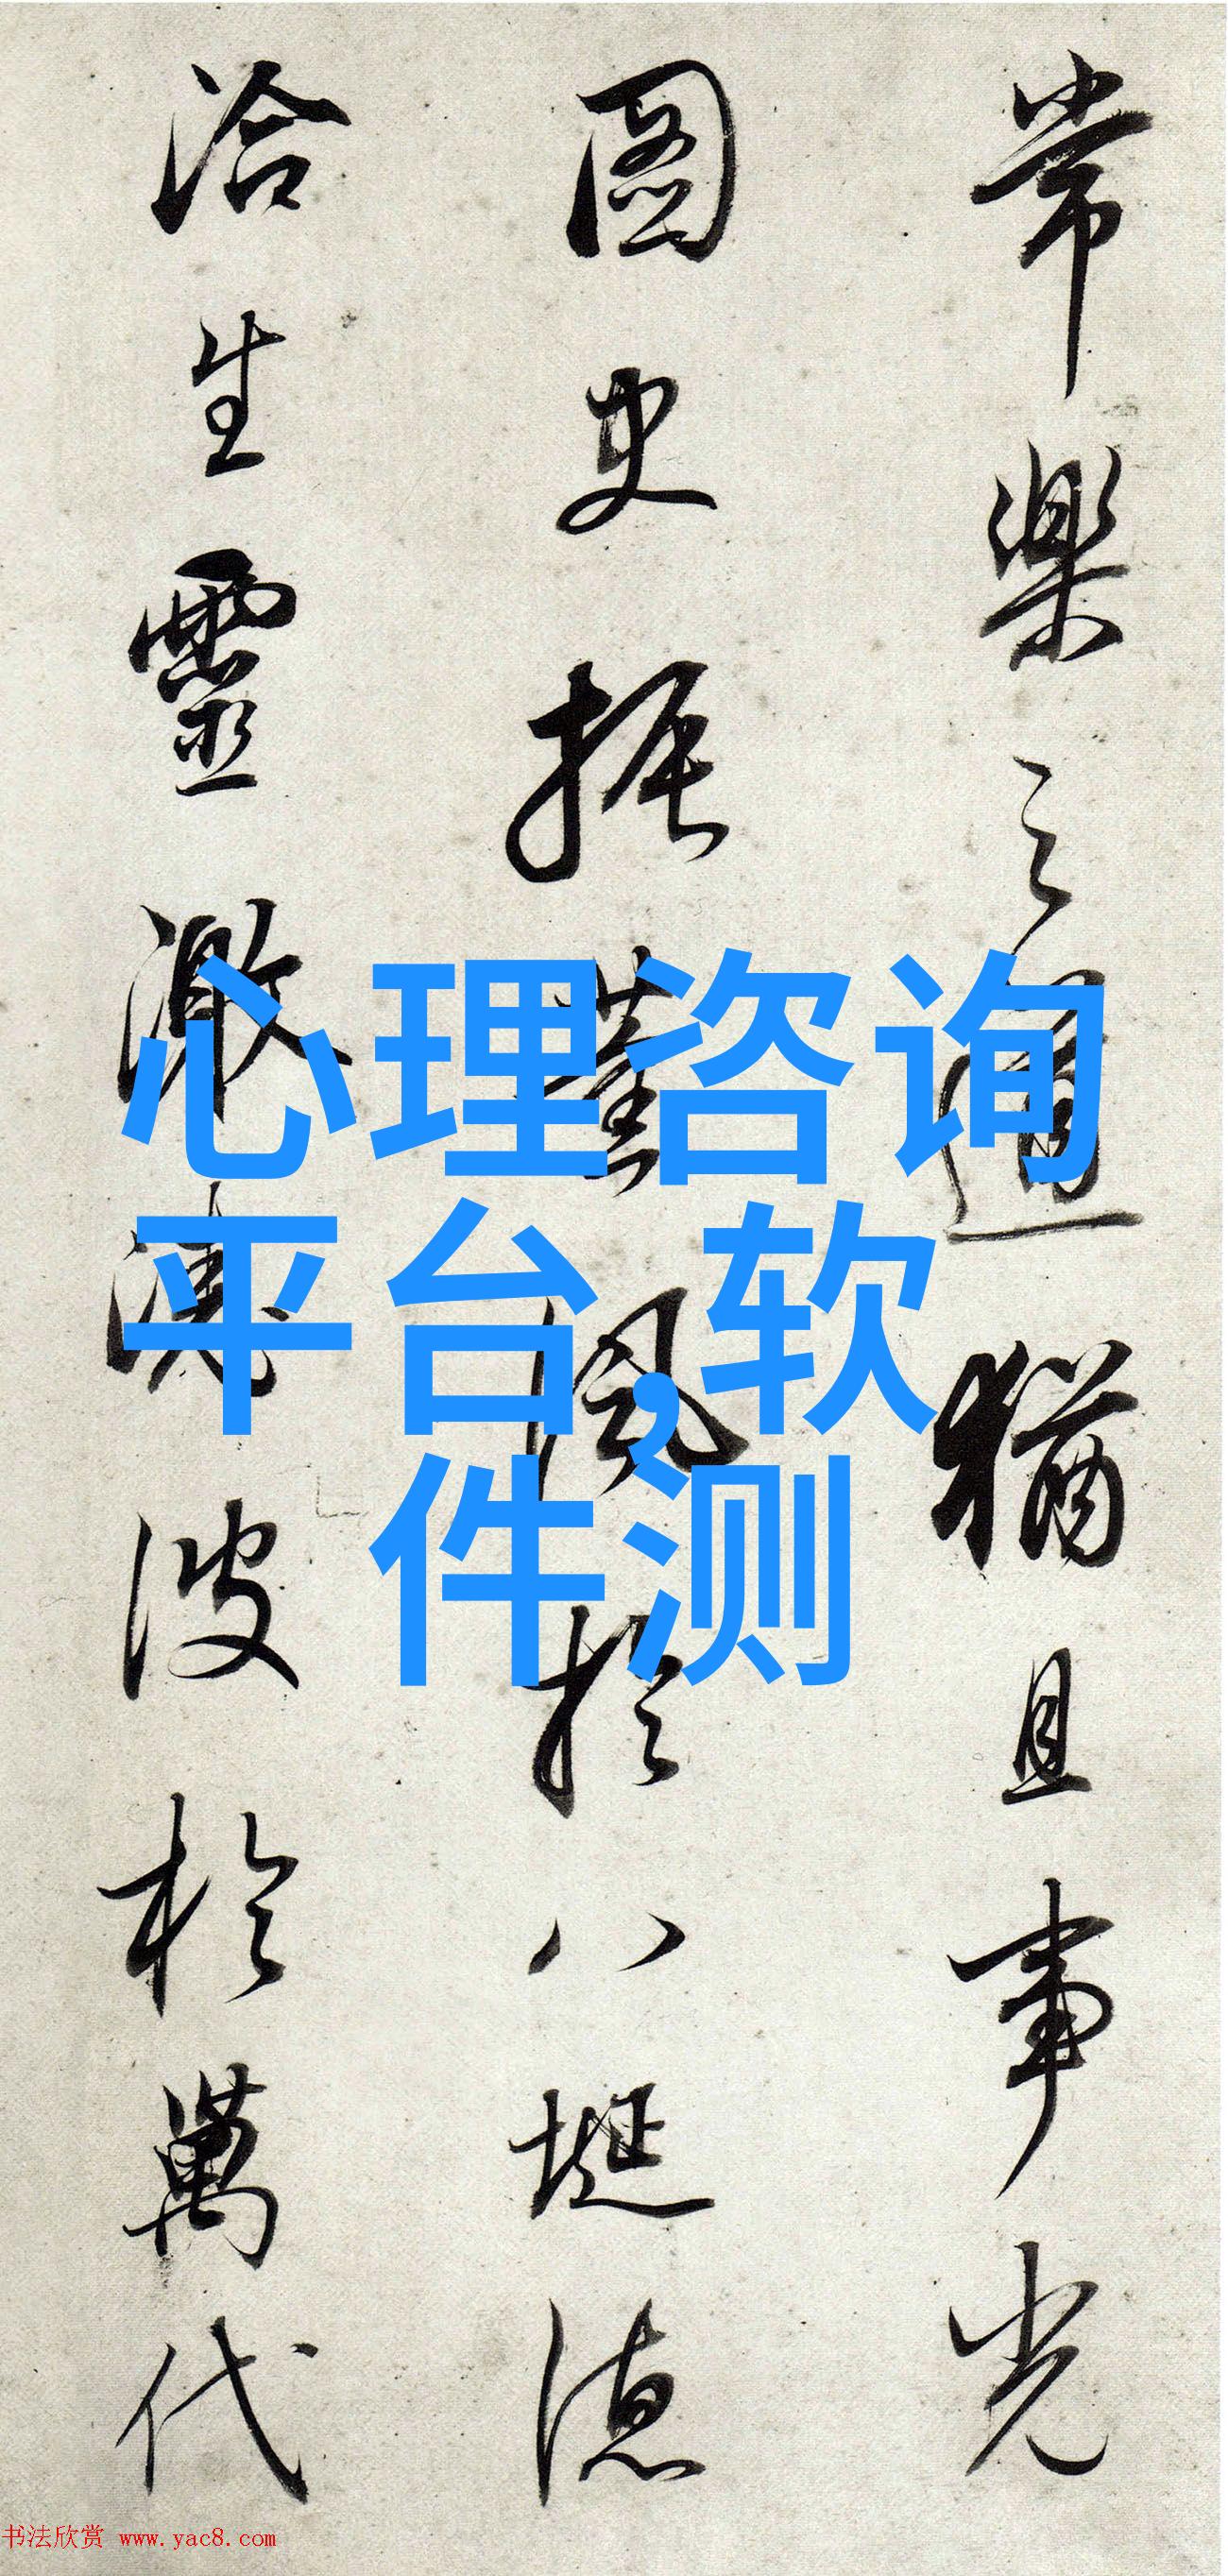 常樂之道猶且事光
圖史振薰風於八埏德
洽生靈激清波於萬代
心理咨询
平台,软
件测
书法欣赏 www.yac8.com